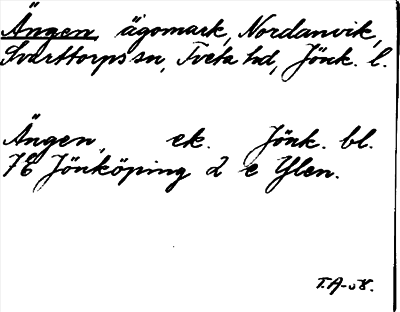 Ängen, ägomark, Nordanvik,
Svarttorps sn, Tveta hd, Jönk. l.
Ängen, ek. Jönk. bl.
7E Jönköping d e Ylen.
T.A-58.